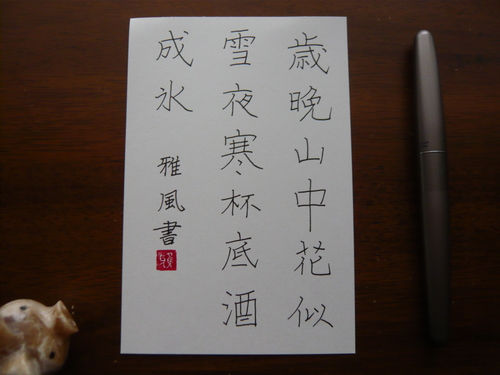 歳晩山中花似
雪夜寒杯底酒
成氷
雅風書